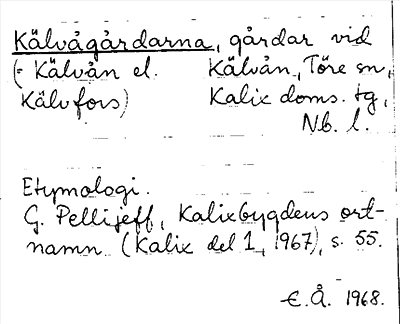 Kälvågårdarna, gårdar vid
(= Kälvån el. Kälvån, Töre sn,
Kälvfors) Kalix doms. tg,
Nb. l.
Etymologi.
G. Pellijeff, Kalixbygdens ort-
namn (Kalix del 1, 1967), s. 55.
E.Å. 1968.